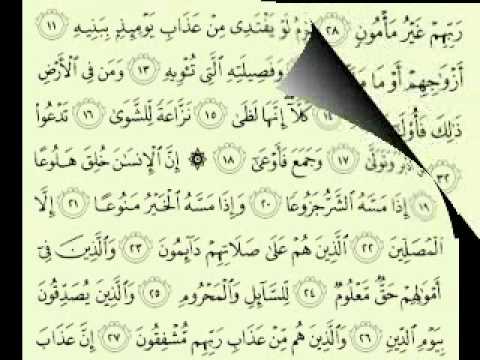 رَبِّهِمْ غَيْرُ مَأْمُونٍ ٢٨ لَوْ يَفْتَدِى مِنْ عَذَابِ يَوْمِئِذٍۭ بِبَنِيهِ ١١
أَزْوَٰجِهِمْ أَوْ مَا وَفَصِيلَتِهِ ٱلَّتِى تُـْٔوِيهِ ١٣ وَمَن فِى ٱلْأَرْضِ
ذَٰلِكَ ١٤ كَلَّآ إِنَّهَا لَظَىٰ ١٥ نَزَّاعَةً لِّلشَّوَىٰ ١٦ تَدْعُوا۟
٣٢ وَتَوَلَّىٰ ١٧ وَجَمَعَ فَأَوْعَىٰٓ ١٨ ۞ إِنَّ ٱلْإِنسَـٰنَ خُلِقَ هَلُوعًا
١٩ إِذَا مَسَّهُ ٱلشَّرُّ جَزُوعًا ٢٠ وَإِذَا مَسَّهُ ٱلْخَيْرُ مَنُوعًا ٢١ إِلَّا
ٱلْمُصَلِّينَ ٢٢ ٱلَّذِينَ هُمْ عَلَىٰ صَلَاتِهِمْ دَآئِمُونَ ٢٣ وَٱلَّذِينَ فِىٓ
أَمْوَٰلِهِمْ حَقٌّ مَّعْلُومٌ ٢٤ لِّلسَّآئِلِ وَٱلْمَحْرُومِ ٢٥ وَٱلَّذِينَ يُصَدِّقُونَ
بِيَوْمِ ٱلدِّينِ ٢٦ وَٱلَّذِينَ هُم مِّنْ عَذَابِ رَبِّهِم مُّشْفِقُونَ ٢٧ إِنَّ عَذَابَ